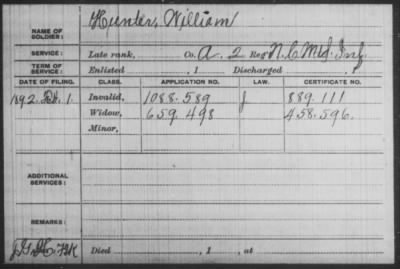 NAME OF SOLDIER: Hunter, William
SERVICE: Late rank, Co. A. 2 Reg't N.C. Mtd. Inf.
TERM OF SERVICE: Enlisted , 1 Discharged , 1
DATE OF FILING. CLASS. APPLICATION NO. LAW. CERTIFICATE NO.
1892. 1. Invalid, 1088.589 J 889.111
Widow, 659.498 458.596.
Minor,
ADDITIONAL SERVICES:
REMARKS:
Died , 1 , at